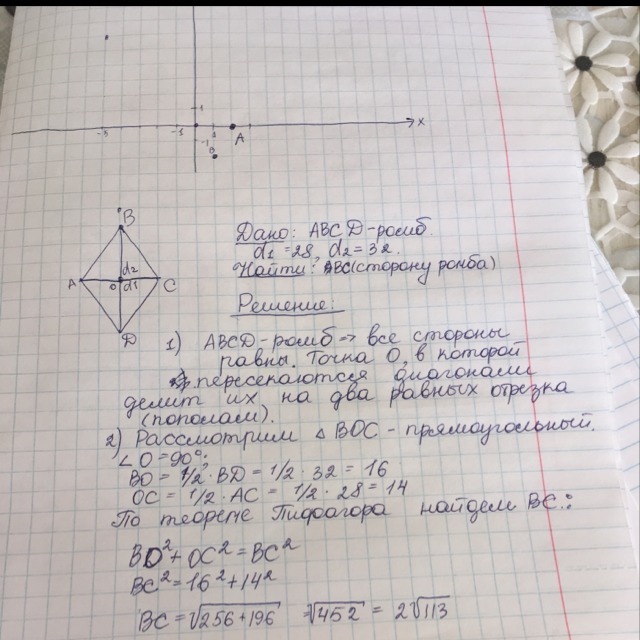 1
-5 -1 1 x
-1 A
B
A d2 C
O d1
D
Дано: ABCD-ромб.
d1=28, d2=32.
Найти: BC(сторону ромба)
Решение:
1) ABCD-ромб-> все стороны
равны. Точка O, в которой
пересекаются диагонали
делит их на два равных отрезка
(пополам).
2) Рассмотрим △ BOC - прямоугольный.
∠O=90°;
BO = 1/2 · BD = 1/2 · 32 = 16
OC = 1/2 · AC = 1/2 · 28 = 14
По теореме Пифагора найдем BC:
BO²+OC²=BC²
BC²=16²+14²
BC=√256+196 =√452 = 2√113